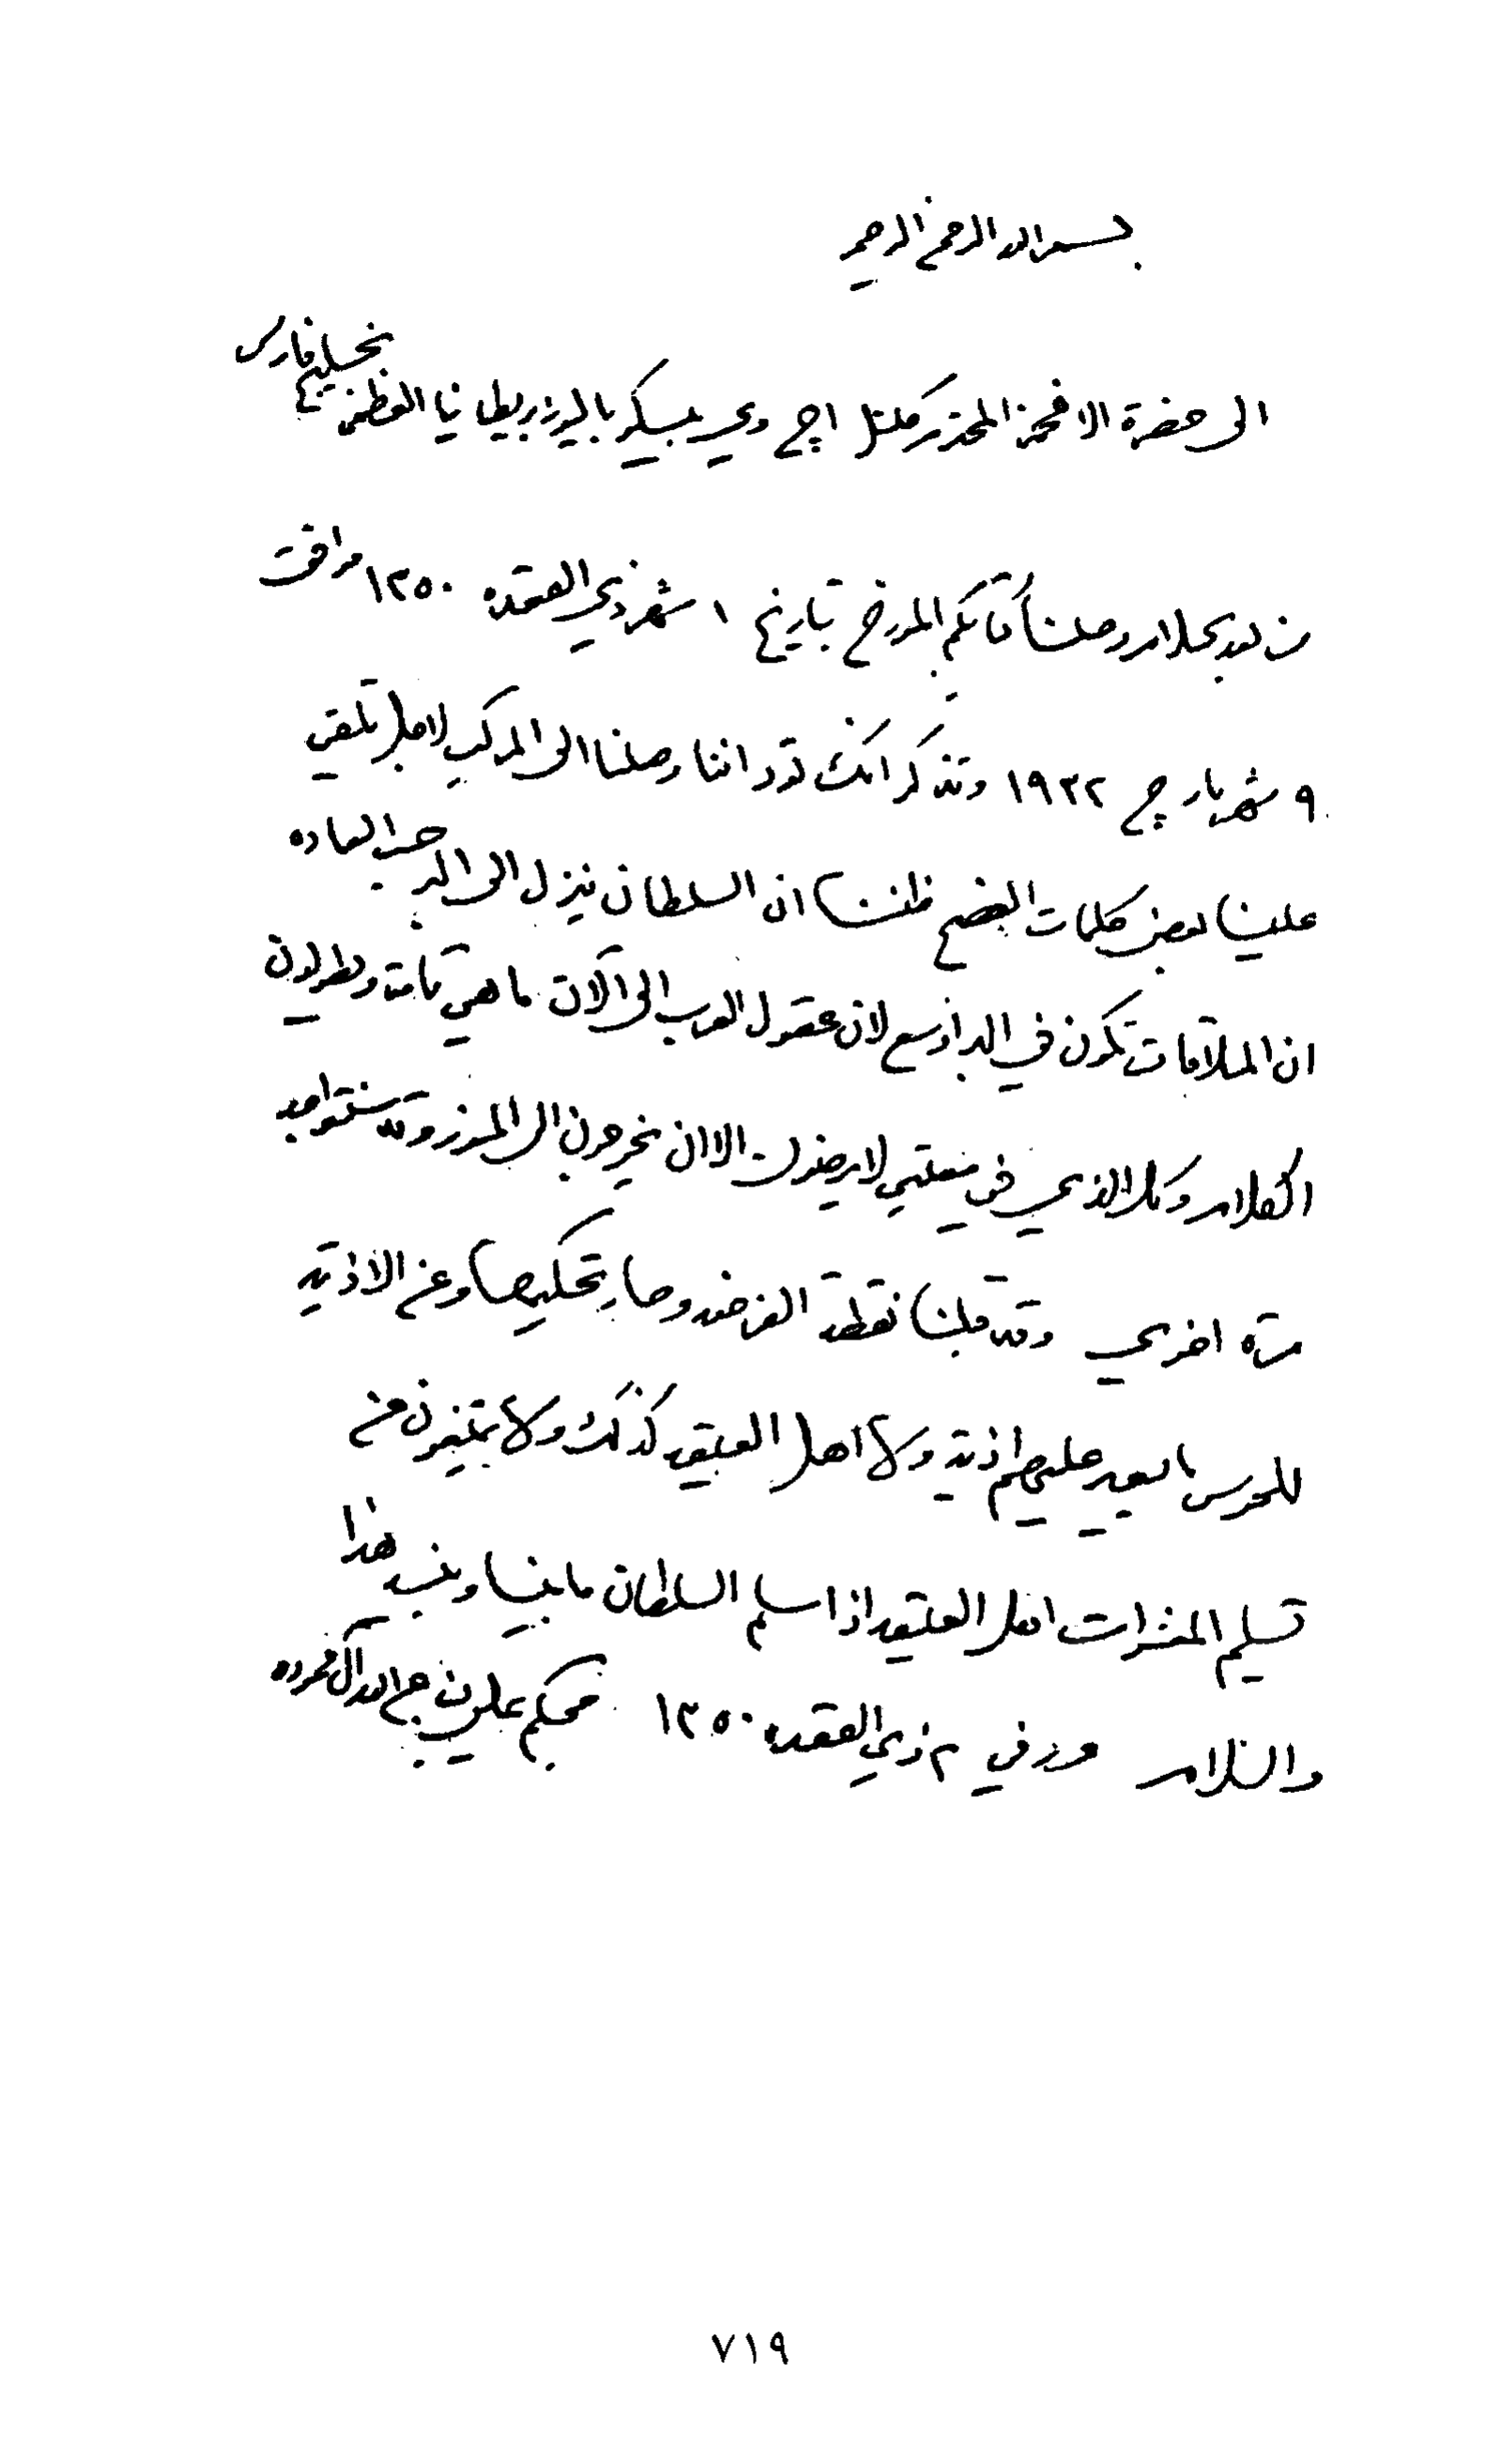 بسم الله الرحمن الرحيم
الى حضرة الافخم المحترم كلنل اچ وي بيسكو باليوز بريطانيا العظمى بخليج فارس
من بعد السلام وصلنا كتابكم المورخ بتاريخ ١ شهر ذي القعده ١٣٥٠ موافق
٩ شهر مارچ ١٩٣٢ وتذكر انك تود اننا وصلنا الى المركب لاجل تلقي
علينا بعض كلمات النصح ظننا ان السلطان ينزل الى البر حسب العاده
ان الملاقات تكون في البر اوسع لان عقول العرب الى الآن ما هي تامة ويطولون
الكلام وكل الذي في معيتي لا يرضون الا ان يخرجون الى المنور وقد سنتواجه
مرة اخرى وقد قبلنا نقطة العرضه وصار تحكيمها وعن الاذية
للحرس ما يصير عليهم اذيه ولا اهل العتيق كذلك ولا يمتنعون عن
تسليم العشرات اهل العتيق اذا سلم السلطان ما بيننا وبينه هذا
والسلام حرر في ٢ ذي القعده ١٣٥٠ محبكم علي بن عبدالله آل حموده
٧١٩